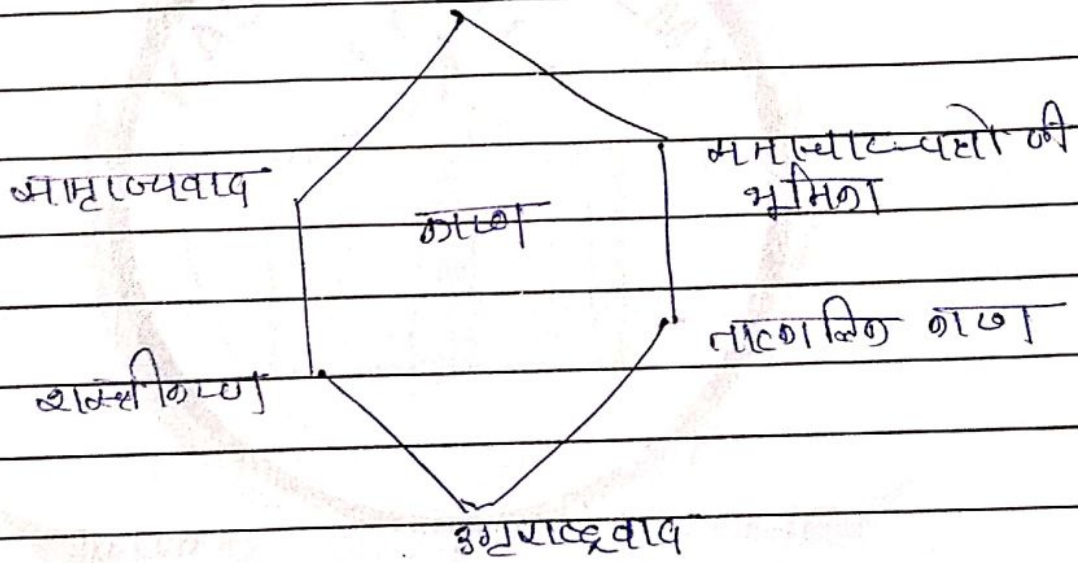 साम्राज्यवाद
कारण
समाचार-पत्रो की
भूमिका
तात्कालिक कारण
शस्त्रीकरण
उग्रराष्ट्रवाद